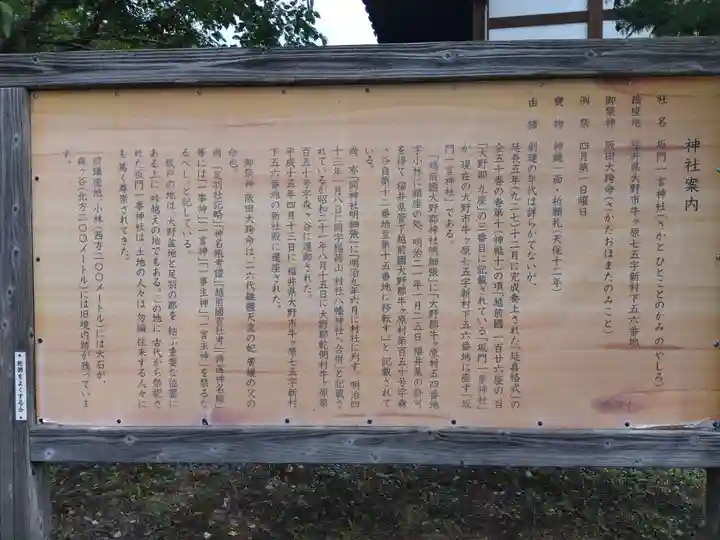 神社案内
社名 坂門一言神社(さかと ひとことのかみの やしろ)
鎮座地 福井県大野市牛ヶ原七五字新村下五六番地
御祭神 阪田大跨命(さかたおほまたのみこと)
例祭 四月第一日曜日
寶物 神鏡一面・祈願札(天保十二年)
由緒 創建の年代は詳らかでないが、
延長五年(九二七)十二月に完成奏上された『延喜格式』の
全五十巻の巻第十(神祇十)の項「越前國一百廿六座の目
「大野郡 九座」の三番目に記載されている「坂門一事神社」
が 現在の大野市牛ヶ原七五字新村下五六番地に座す「坂
門一言神社」である。
『越前國大野郡神社明細帳』に「大野郡牛ヶ原村五四番地
字小林に鎮座の処、明治二一年一月二五日 福井県の許可
を得て 福井県管下越前國大野郡牛ヶ原村第百五十号字森
ヶ谷自第十二番地至第十五番地に移転す」と記載されて
いる。
尚、亦『同神社明細帳』に「明治九年六月に村社に列す、明治四
十三年一月八日に同字稲荷山 村社八幡神社へ合併」と記載さ
れているが昭和二十一年八月十五日に大野郡乾側村牛ヶ原第
百五十号字森ヶ谷に還御された。
平成十五年四月十三日に福井県大野市牛ヶ原七五字新村
下五六番地の新社殿に遷座された。
御祭神 阪田大跨命は、二六代継體天皇の妃 廣媛の父の
命也。
尚 『足羽社記略』『神名帳考證』『越前國官社考』『神祇神名帳』
等には「一事神」「一言神」「一事主神」「一言主神」を祭るな
るべし」と記している。
坂戸の地は、大野盆地と足羽の郡を 結ぶ重要な位置に
ある上に 峠越えの地でもある。この地に 古代から祭祀さ
れた坂門一事神社は 土地の人々は 勿論 往来する人々に
も篤く尊崇されてきた。
前鎮座地 小林(西方二〇〇メートル)には大石が、
森ヶ谷(北方二〇〇メートル)には旧境内跡が残っていま
す。
乾側をよくする会